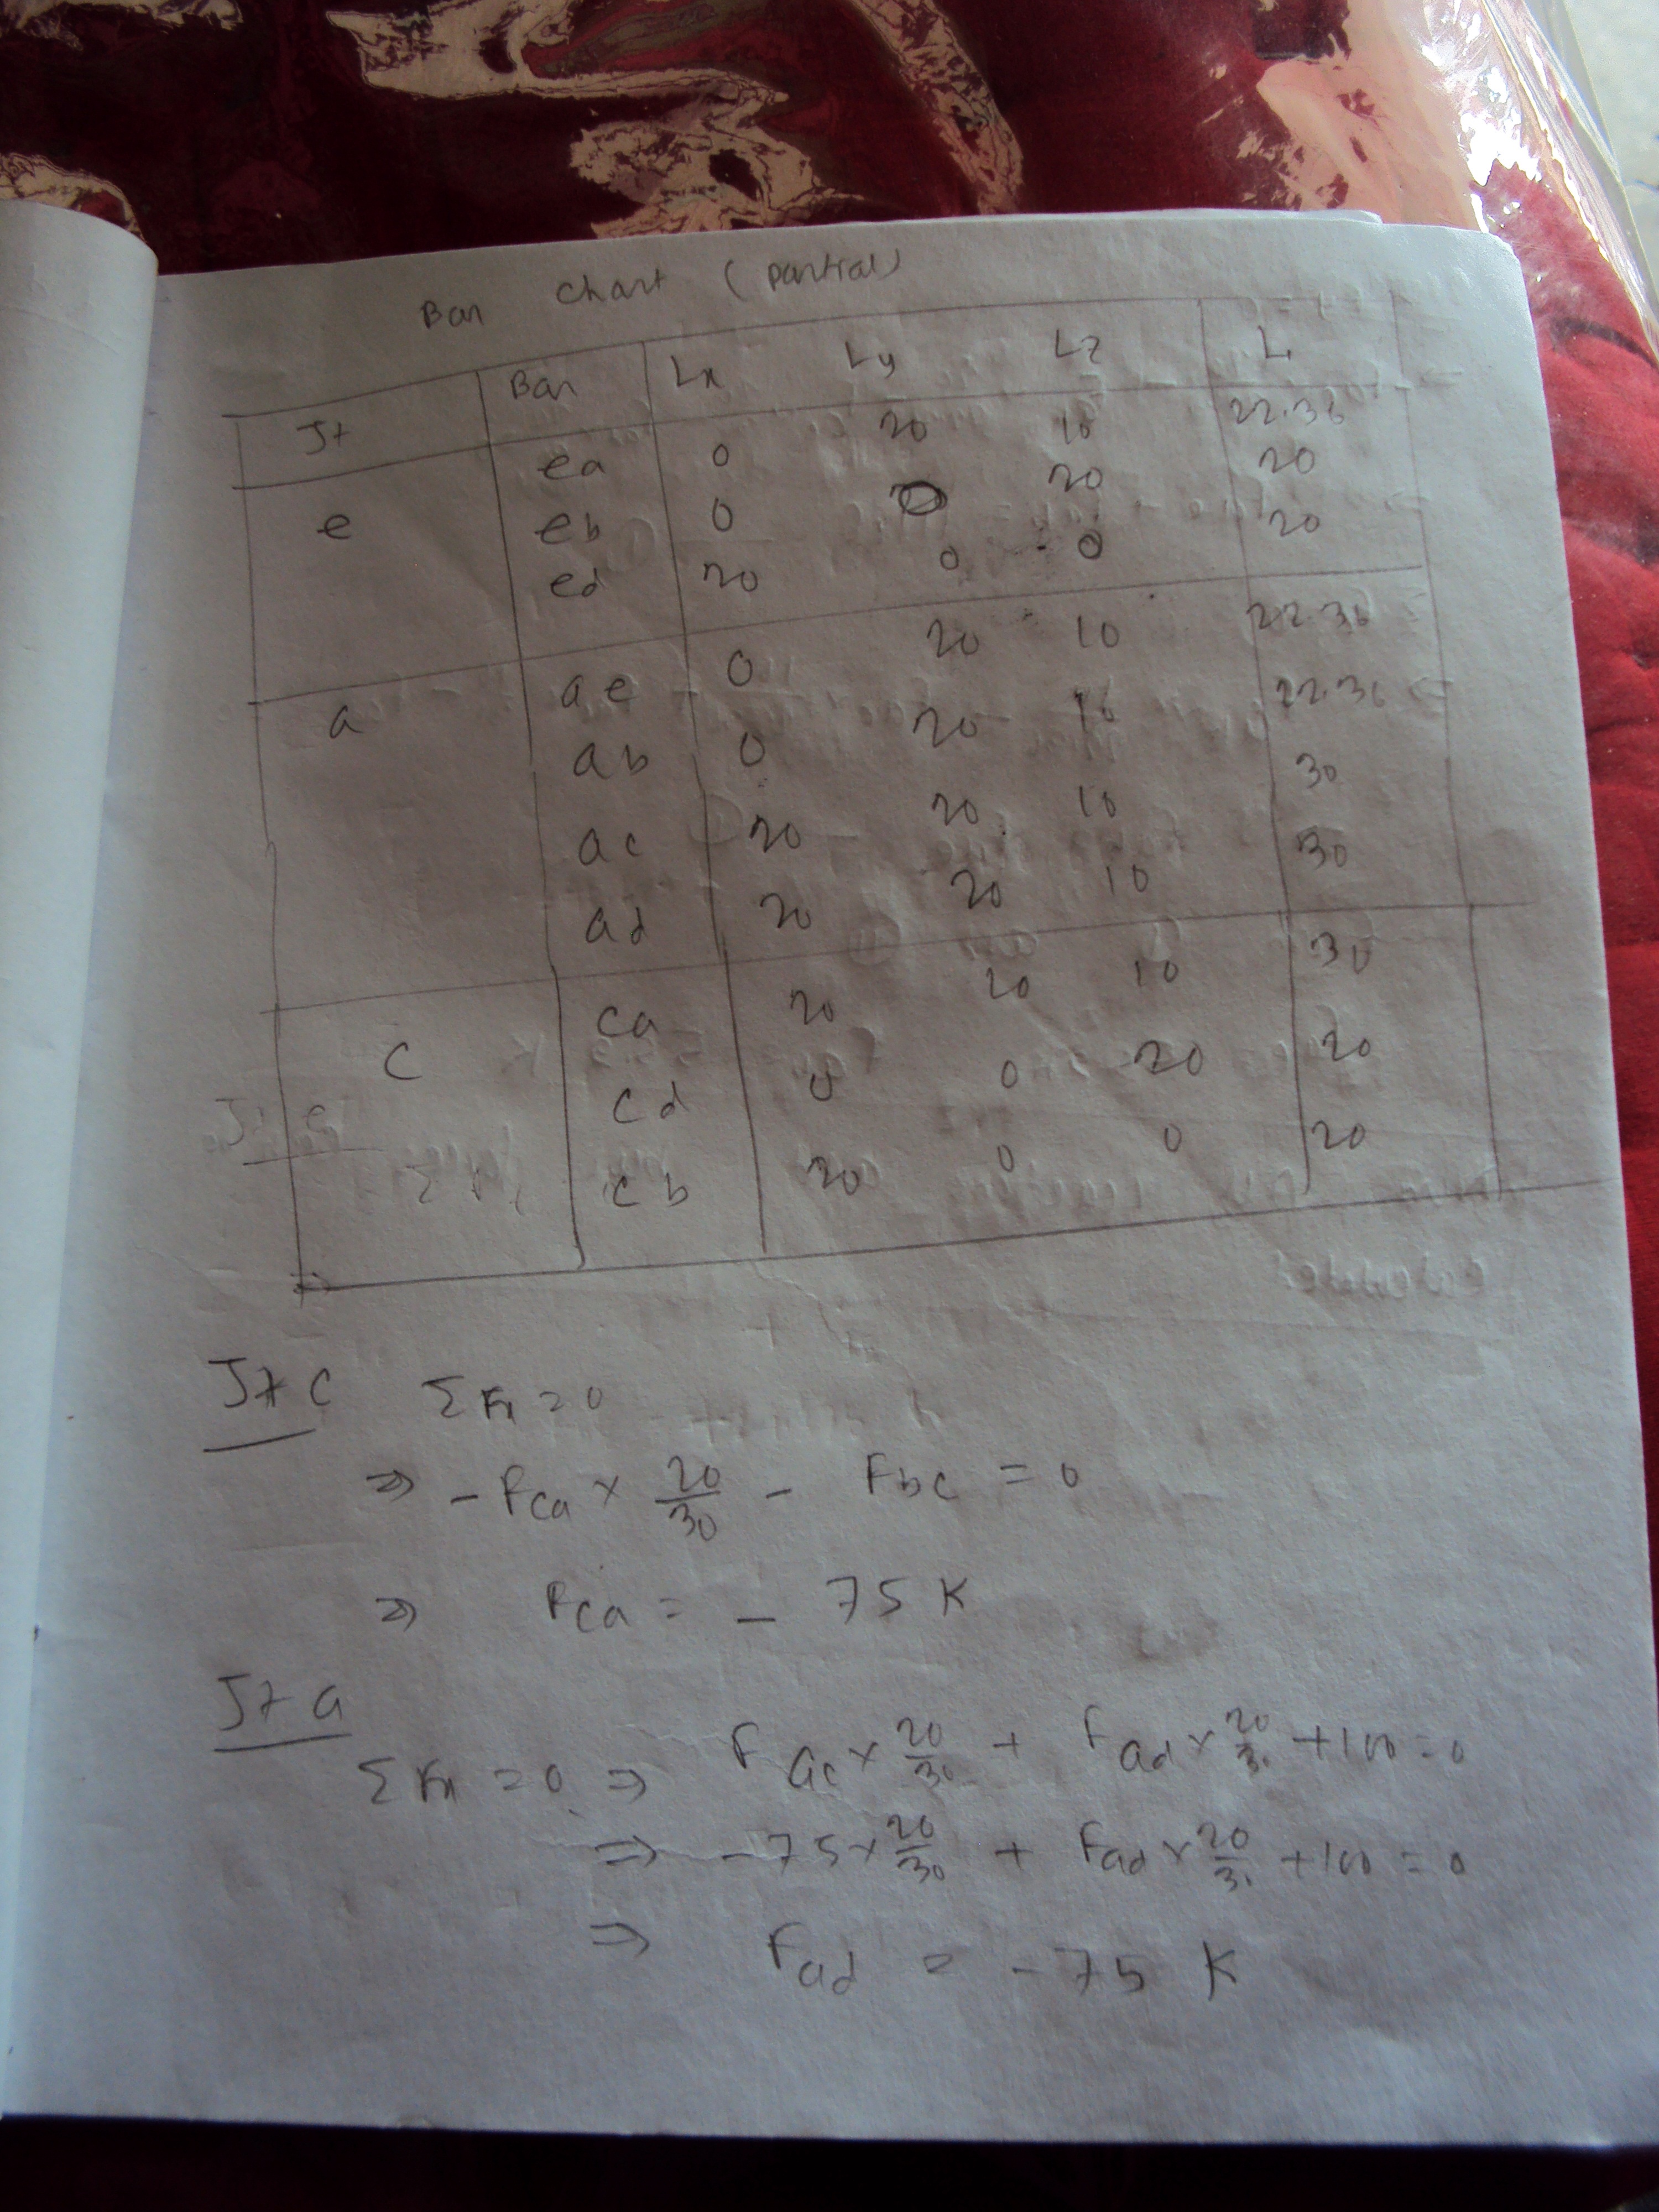 Bar chart (partial)
Jt Bar Lx Ly Lz L
e ea 0 20 10 22.36
eb 0 0 20 20
ed 20 0 0 20
a ae 0 20 10 22.36
ab 0 20 10 22.36
ac 20 20 10 30
ad 20 20 10 30
c ca 20 20 10 30
cd 0 0 20 20
cb 20 0 0 20
Jt c ΣFx = 0
⇒ - Fca × 20/30 - Fbc = 0
⇒ Fca = - 75 K
Jt a
ΣFx = 0 ⇒ Fac × 20/30 + Fad × 20/30 + 100 = 0
⇒ - 75 × 20/30 + Fad × 20/30 + 100 = 0
⇒ Fad = - 75 K